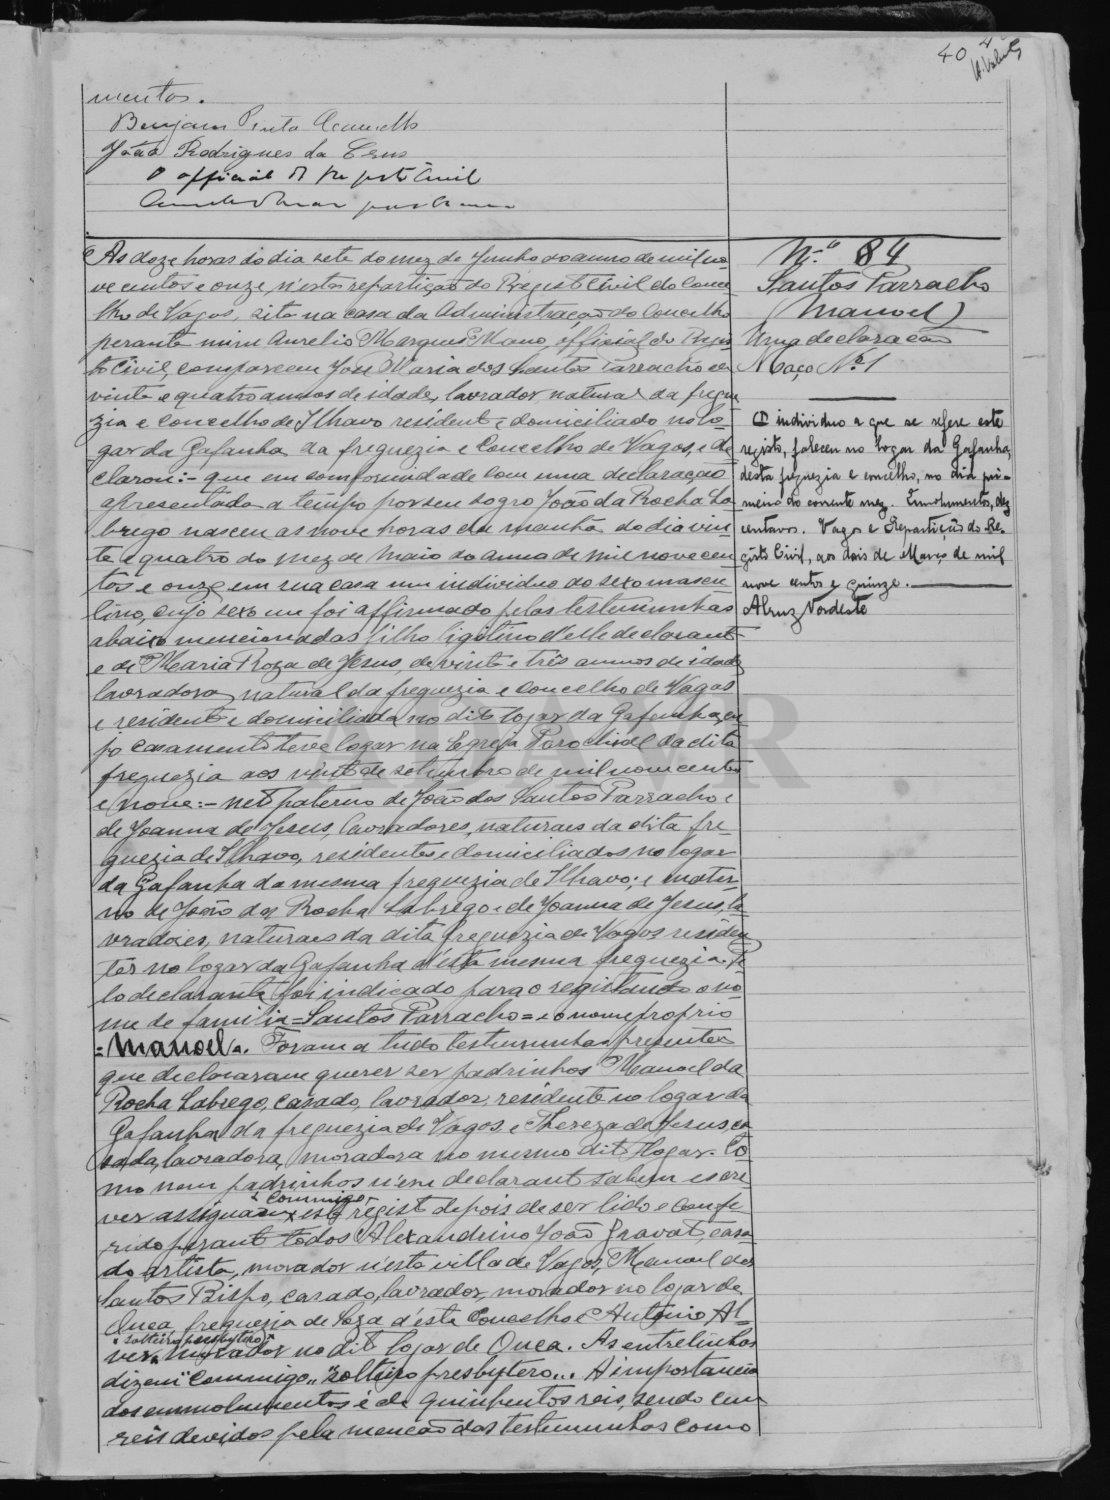 40
mentos.
João Rodrigues da Cruz
O official do Registo Civil
As doze horas do dia sete do mez de Junho do anno de mil no-
ve centos e onze, n'esta repartição do Registo Civil do Conce-
lho de Vagos, sita na casa da Administração do Concelho
perante mim Aurelio Marques Mano, official do Regis-
to Civil, compareceu José Maria dos Santos Parracho de
vinte e quatro annos de idade, lavrador natural da fregue-
zia e concelho de Ilhavo resident e domiciliado no lo-
gar da Gafanha da freguezia e Concelho de Vagos, e de-
clarou:- que em comformidade com uma declaração
apresentada a tempo por seu sogro João da Rocha La-
brego nasceu as nove horas da manhã do dia vin-
te e quatro do mez de Maio do anno de mil nove cen-
tos e onze em sua casa um individuo do sexo mascu-
lino, cujo sexo me foi affirmado pelas testemunhas
abaixo mencionadas filho ligitimo d'elle declarant
e de Maria Roza de Jesus, de vinte e três annos de idade
lavradora, natural da freguezia e Concelho de Vagos
e resident e domiciliada no dito logar da Gafanha, cu-
jo casamento teve logar na Egreja Parochial da dita
freguezia aos vinte de setembro de mil nove centos
e nove:- neto paterno de João dos Santos Parracho e
de Joanna de Jesus, lavradores, naturaes da dita fre-
guezia de Ilhavo, residentes e domiciliados no logar
da Gafanha da mesma freguezia de Ilhavo; e mater-
no de João da Rocha Labrego e de Joanna de Jesus, la-
vradores, naturaes da dita freguezia de Vagos residen-
tes no logar da Gafanha d'esta mesma freguezia. Pe-
lo declarante foi indicado para o registando o no-
me de familia = Santos Parracho = e o nome proprio
= Manoel =. Foram a tudo testemunhas presentes
que declararam querer ser padrinhos Manoel da
Rocha Labrego, casado, lavrador, residente no logar da
Gafanha da freguezia de Vagos e Thereza de Jesus ca-
sada, lavradora, moradora no mesmo dito logar. Co-
mo nem padrinhos nem declarant sabem escre-
"Commigo"
ver assignam este regist depois de ser lido e confe-
rido perante todos Alexandrino João Gravato, casa-
do artista, morador n'esta villa de Vagos, Manoel dos
Santos Bispo, casado, lavrador, morador no logar de
Ouca, freguezia de Soza d'este Concelho e Antonio Al-
"solteiro presbytero"
ves, morador no dito logar de Ouca. As entrelinhas
dizem "Commigo" "solteiro presbytero". A importancia
dos emmolumentos é de quinhentos reis, sendo cem
reis devidos pela menção das testemunhas como
N.º 84
Santos Parracho
(Manoel)
Uma declaração
Maço Nº 1
O individuo a que se refere este
registo, faleceu no logar da Gafanha,
desta freguezia e concelho, no dia pri-
meiro do corrente mez. Emolumentos, dez
centavos. Vagos e Repartição do Re-
gisto Civil, aos dois de Março de mil
nove centos e quinze.